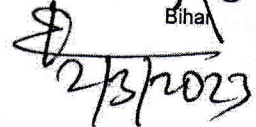 Bihar
2/3/2023